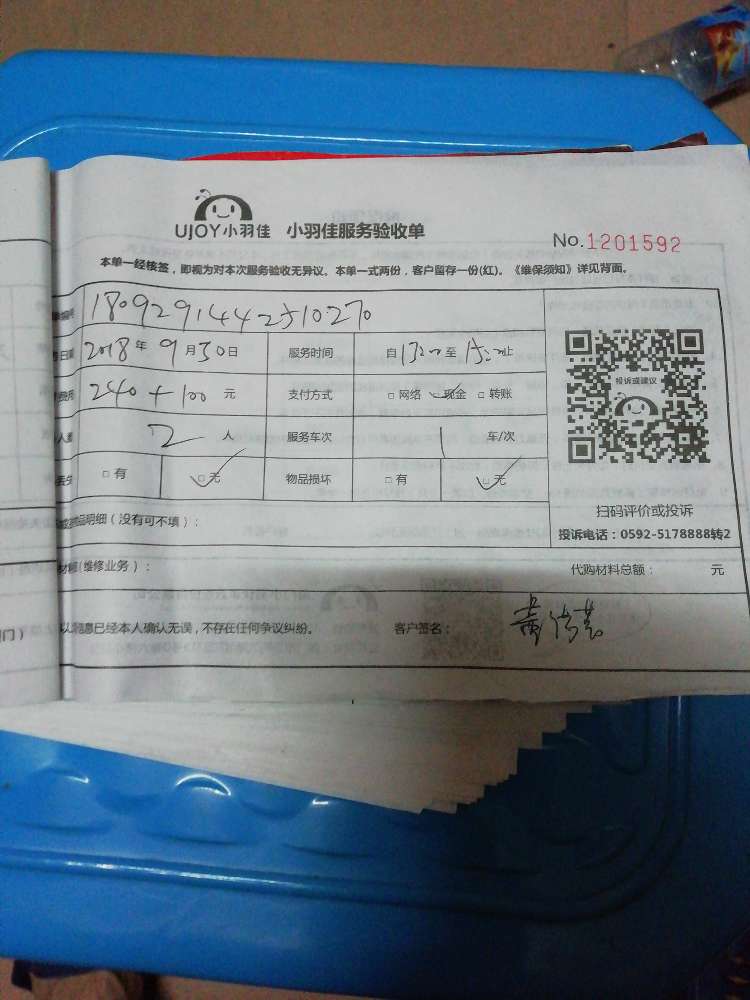 UJOY小羽佳 小羽佳服务验收单
No.1201592
本单一经核签，即视为对本次服务验收无异议。本单一式两份，客户留存一份(红)。《维保须知》详见背面。
1809291442510270
2018年9月30日 服务时间 自13:00至15:00止
240+100 元 支付方式 □网络 现金 □转账
2 人 服务车次 1 车/次
□有 □无 物品损坏 □有 □无
投诉或建议
扫码评价或投诉
投诉电话：0592-5178888转2
品明细（没有可不填）：
(维修业务)： 代购材料总额： 元
以 信息已经本人确认无误，不存在任何争议纠纷。 客户签名：
门）